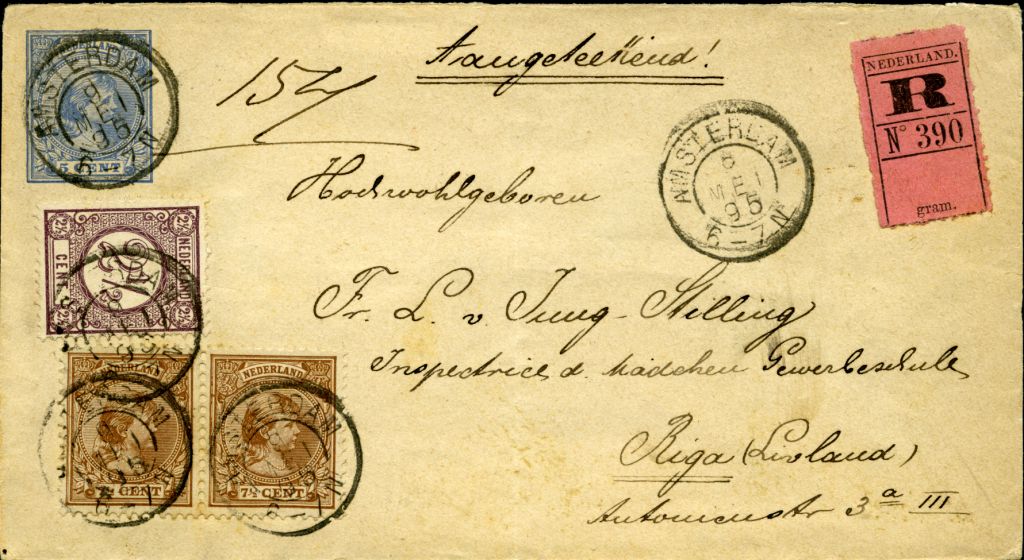 Aangeteekend!
154
NEDERLAND
5 CENT
AMSTERDAM
8 MEI 95
6-7 N
AMSTERDAM
8 MEI 95
6-7 N
NEDERLAND.
R
N° 390
gram.
Hochwohlgeboren
Fr. L. v Jung-Stilling
Inspectrice d. Mädchen Gewerbeschule
Riga (Livland)
Antonienstr 3a III
NEDERLAND
2½
CENT
NEDERLAND
7½ CENT
NEDERLAND
7½ CENT
AMSTERDAM